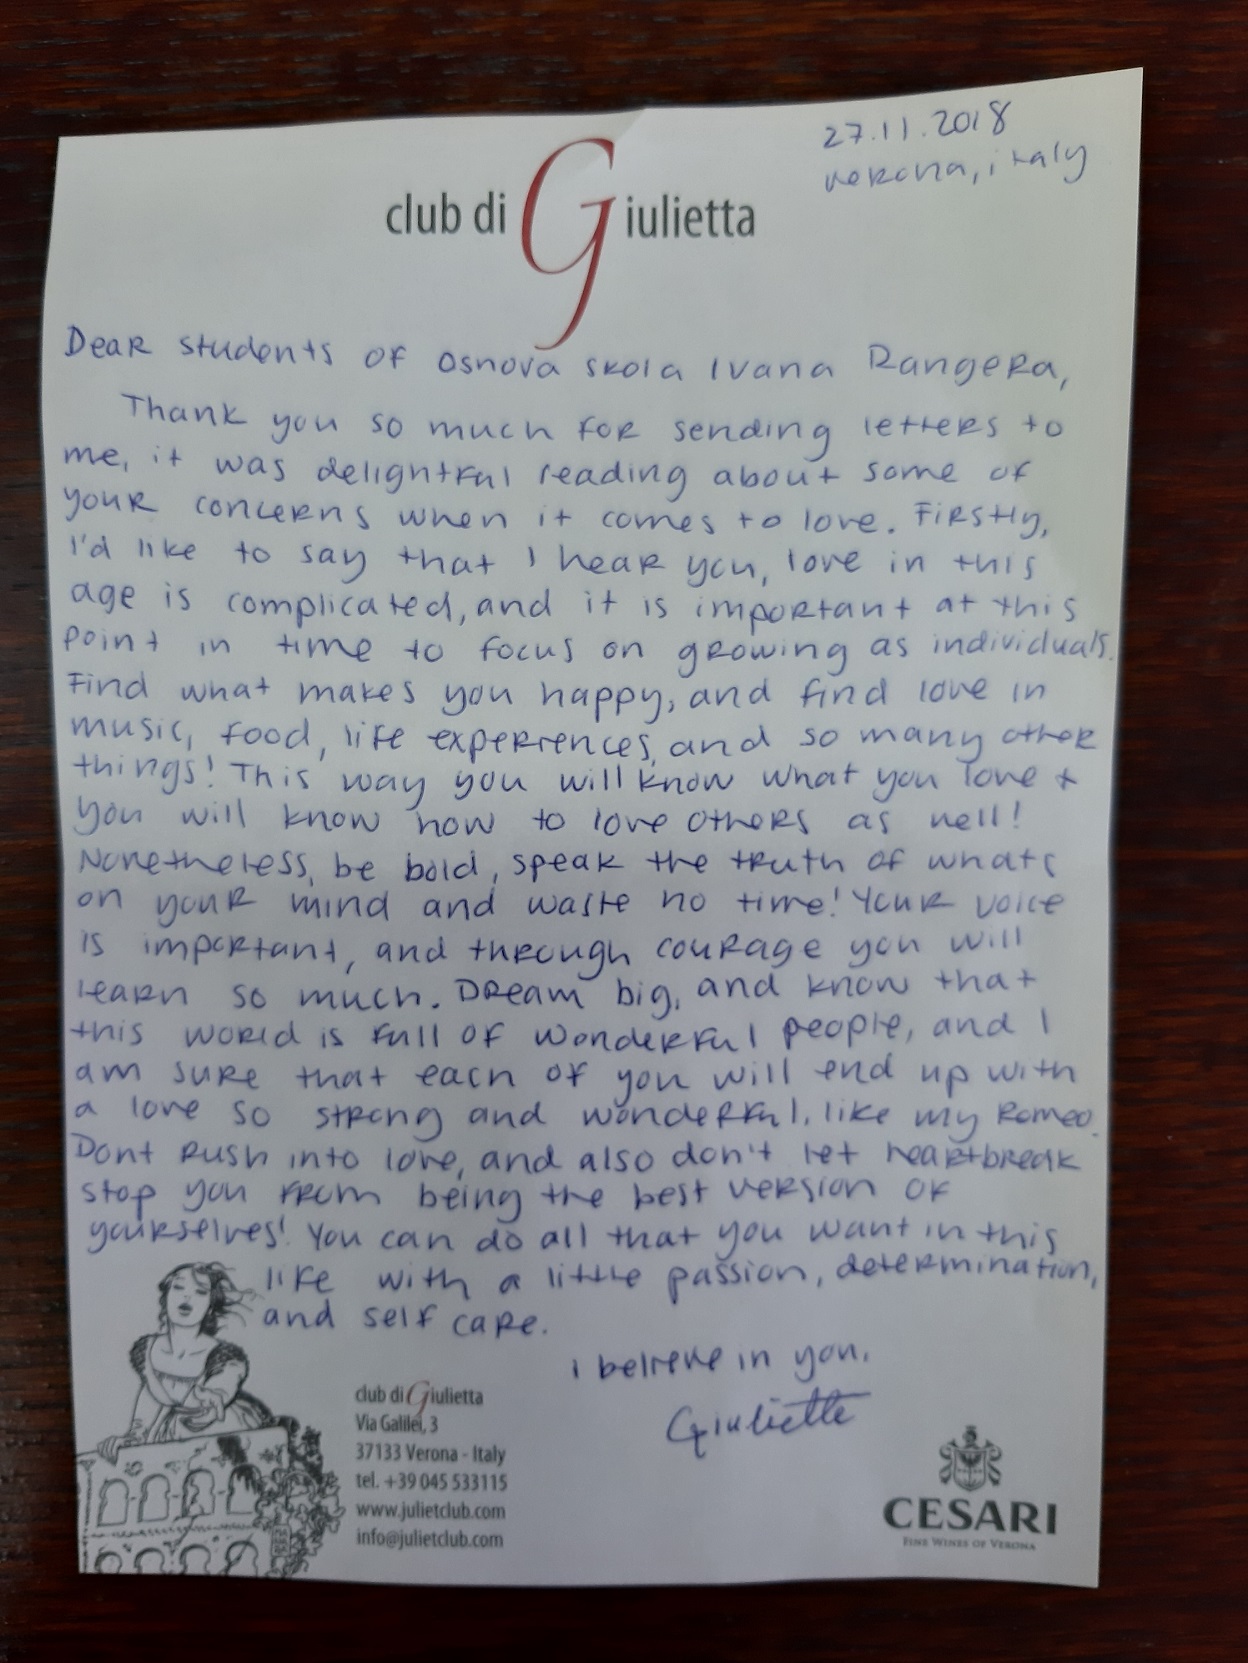 27.11.2018
Verona, italy
club di Giulietta
Dear students of Osnova Skola Ivana Rangera,
Thank you so much for sending letters to
me, it was delightful reading about some of
your concerns when it comes to love. Firstly,
I'd like to say that I hear you, love in this
age is complicated, and it is important at this
point in time to focus on growing as individuals.
Find what makes you happy, and find love in
music, food, life experiences, and so many other
things! This way you will know what you love +
you will know how to love others as well!
Nonetheless, be bold, speak the truth of whats
on your mind and waste no time! Your voice
is important, and through courage you will
learn so much. Dream big, and know that
this world is full of wonderful people, and I
am sure that each of you will end up with
a love so strong and wonderful, like my Romeo.
Dont rush into love, and also don't let heartbreak
stop you from being the best version of
yourselves! You can do all that you want in this
life with a little passion, determination,
and self care.
I believe in you,
Giuliette
club di Giulietta
Via Galilei, 3
37133 Verona - Italy
tel. +39 045 533115
www.julietclub.com
info@julietclub.com
CESARI
FINE WINES OF VERONA